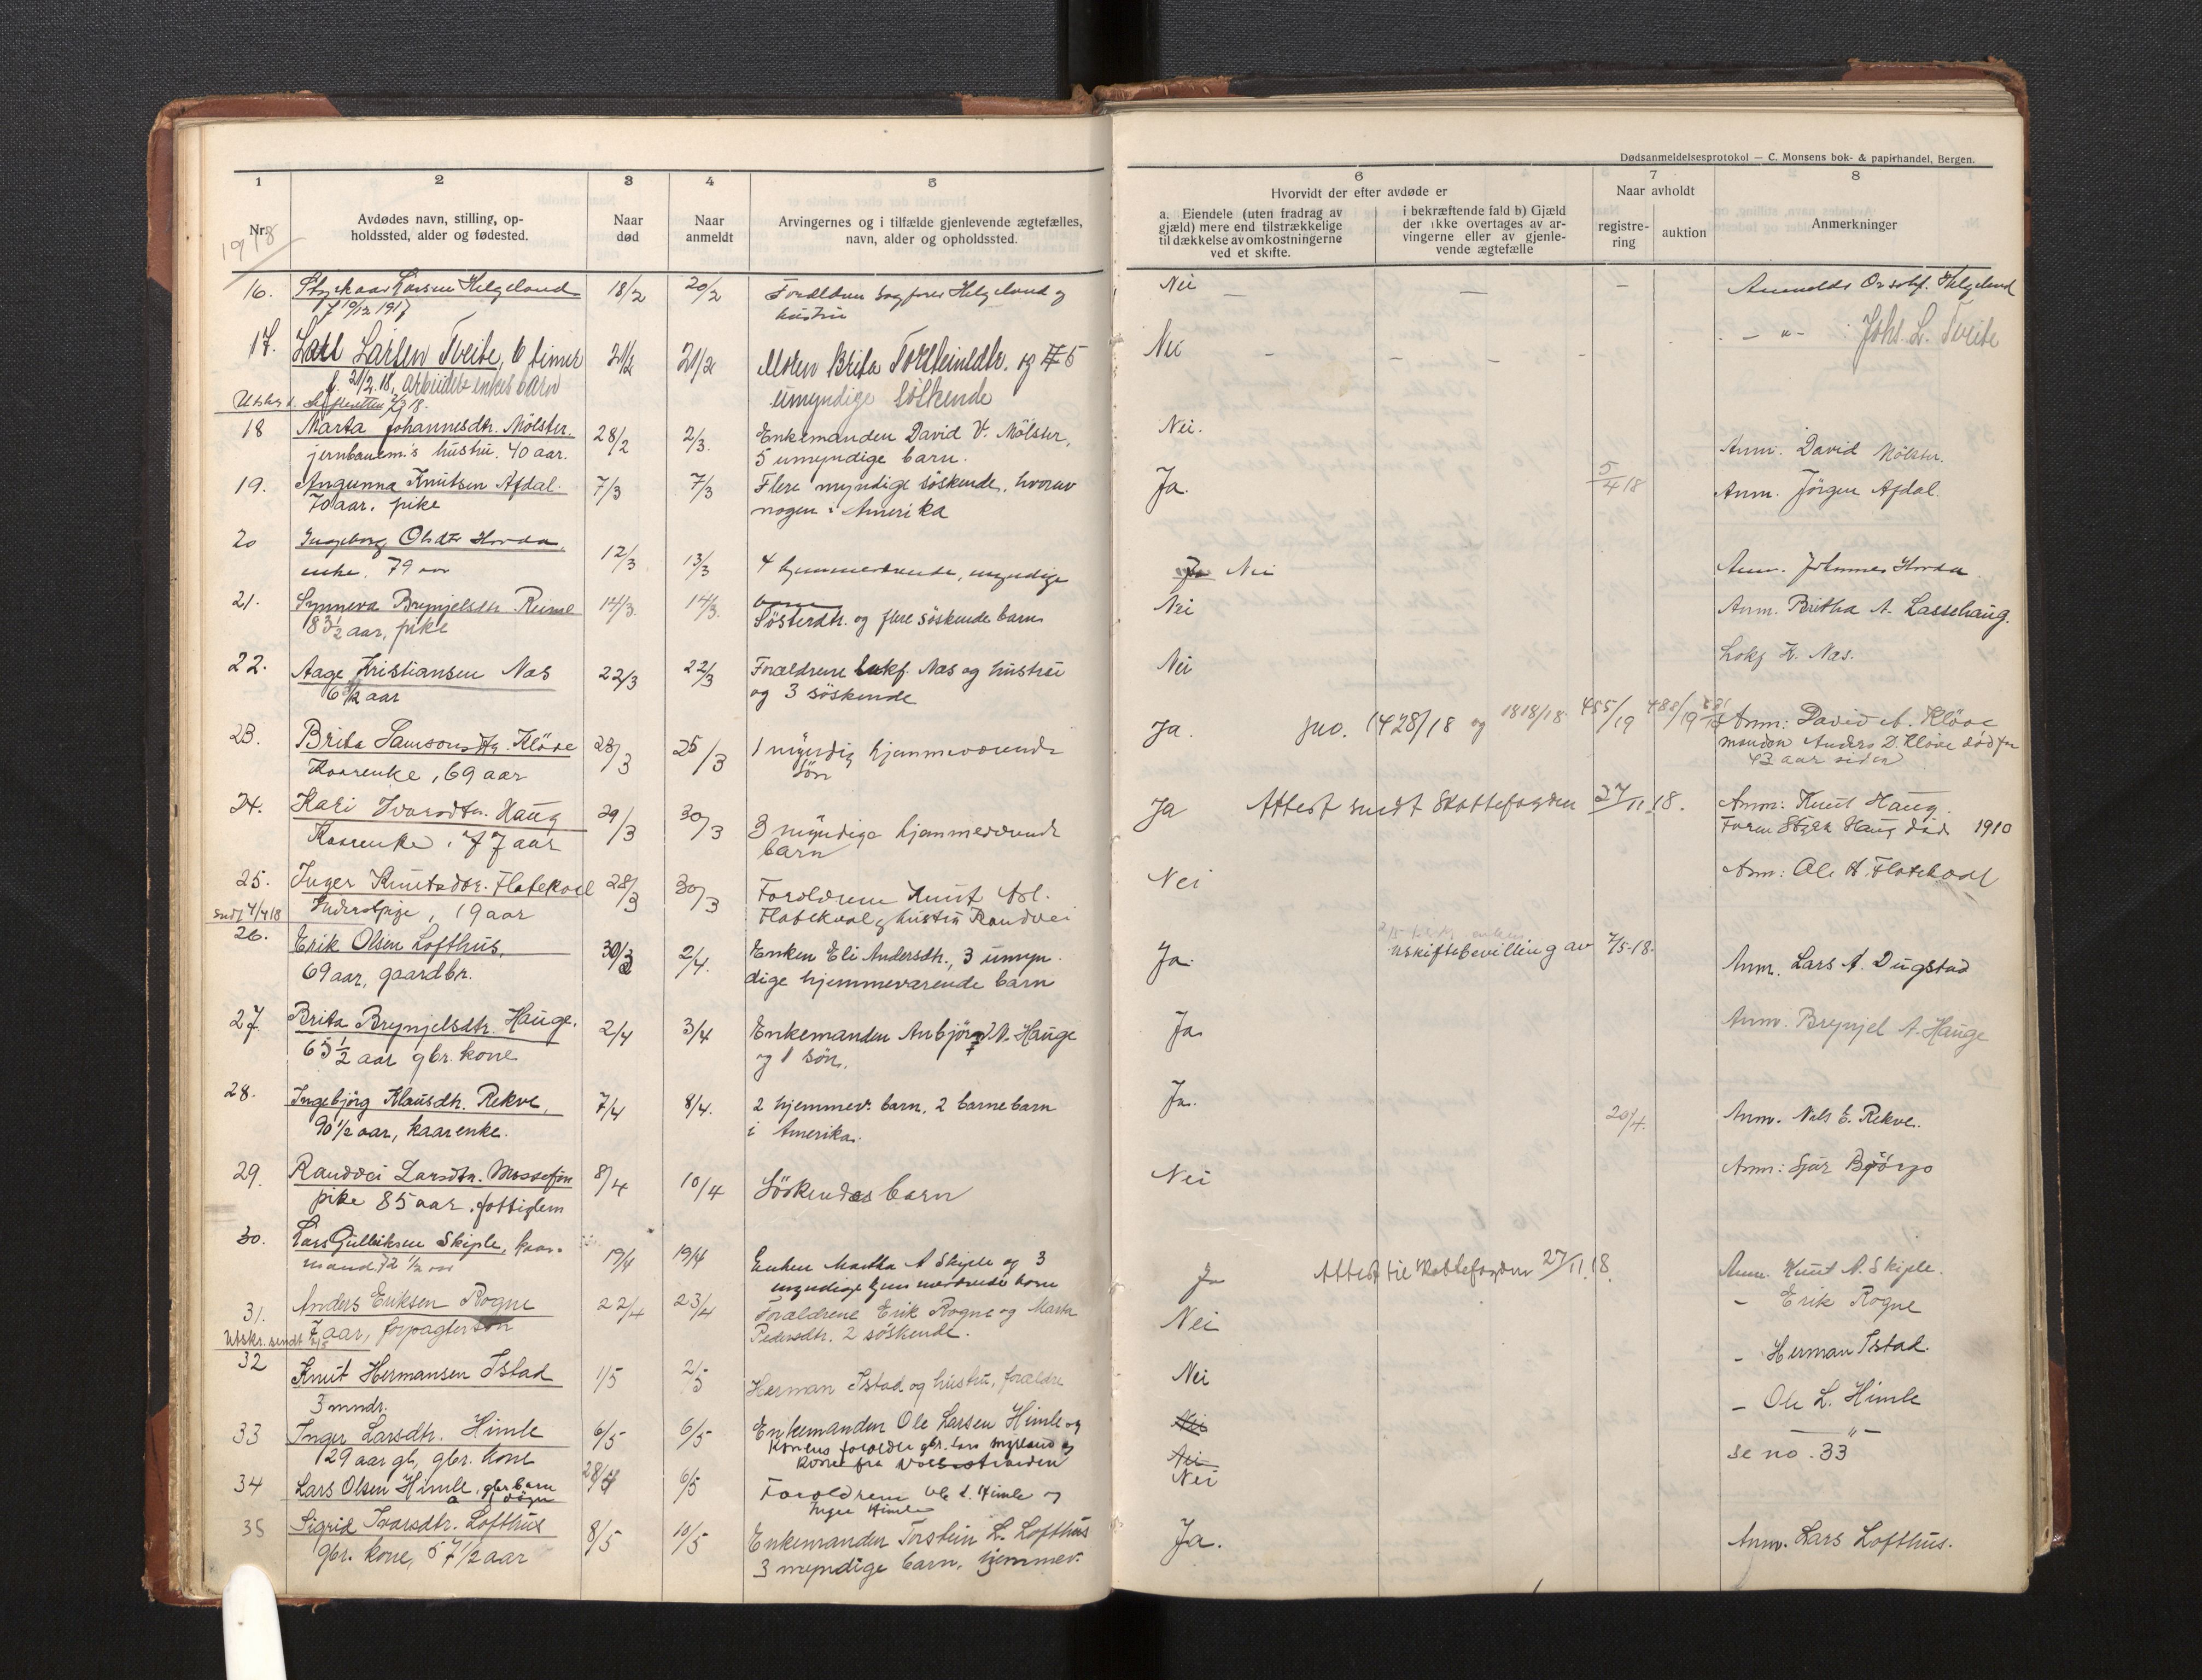 Dødsanmeldelsesprotokol — C. Monsens bok- & papirhandel, Bergen.
1
2
3
4
5
Nr.
Avdødes navn, stilling, op-
holdssted, alder og fødested.
Naar
død
Naar
anmeldt
Arvingernes og i tilfælde gjenlevende ægtefælles,
navn, alder og opholdssted.
6
7
8
Hvorvidt der efter avdøde er
a. Eiendele (uten fradrag av
gjæld) mere end tilstrækkelige
til dækkelse av omkostningerne
ved et skifte.
i bekræftende fald b) Gjæld
der ikke overtages av ar-
vingerne eller av gjenle-
vende ægtefælle
Naar avholdt
registre-
ring
auktion
Anmerkninger
1918
16. Larsen Helgeland 18/2 20/2 Helgeland og Nei — — —
hustru
Helgeland
17. Larsen Tveite, 6 timer 21/2 21/2 Moren Brita Torsteinsdtr. og 5 Nei - - - - — " — Johs. L. Tveite
f. 21/2 18, arbeider enkes barn umyndige søskende
18 Marta Johannesdtr. Mölster. 28/2 2/3. Enkemanden David V. Mölster, Nei. Anm. David Mölster.
jernbanem.'s hustru. 40 aar. 5 umyndige barn.
19. Angunna Knutsen Afdal. 7/3 7/3 Flere myndige søskende, hvorav Ja. 5/4 18 Anm. Jörgen Afdal.
70 aar. pike nogen i Amerika
20 Ingeborg Olsdtr Horda, 12/3 13/3 4 hjemmeværende, myndige Ja Nei Anm. Johannes Horda
enke. 79 aar barn
21. Synneva Brynjelsdtr. Reime 14/3. 14/3. Søsterdtr. og flere søskende barn Nei Anm. Britha A. Lassehaug.
83 1/2 aar, pike
22. Aage Kristiansen Næs 22/3 22/3 Forældrene lokf. Næs og hustru Nei Lokf K. Næs.
6 1/2 aar og 3 søskende
23. Brita Samsonsdtr. Klöve 23/3 25/3 1 myndig hjemmeværende Ja. jno. 1428/18 og 1818/18 455/19 488/19 Anm: David A. Klöve
Kaarenke, 69 aar sön manden Anders D. Klöve död for
43 aar siden
24. Kari Ivarsdtr. Haug 29/3 30/3 3 myndige hjemmeværende Ja Attest sendt Skattefogden 27/11 18. Anm: Knut Haug.
Kaarenke, 77 aar barn Faren Haug död 1910
25. Inger Knutsdtr. Flatekval 28/3 30/3 Forældrene Knut Flatekval & hustru Randvei Nei Anm: Ole A. Flatekval
sendt 4/4 18 19 aar
26. Erik Olsen Lofthus, 30/3 2/4. Enken Eli Andersdtr., 3 umyn- Ja. uskiftebevilling av 7/5-18. Anm. Lars A. Dugstad
69 aar, gaardbr. dige hjemmeværende barn
27 Brita Brynjelsdtr. Hauge. 2/4 3/4 Enkemanden Anbjörn N. Hauge Ja Anm. Brynjel A. Hauge
65 1/2 aar gbr. kone og 1 sön.
28. Ingebjörg Klausdtr. Rekve, 7/4 8/4. 2 hjemmev. barn, 2 barnebarn Ja. 20/4. Anm. Nils E. Rekve.
90 1/2 aar, kaarenke. i Amerika.
29. Randvei Larsdtr. 8/4 10/4 Söskendes barn Nei Anm: Sjur Björgo
pike 85 aar. fattiglem
30. Lars Gulleiksen Skiple, kaar- 19/4 19/4 Enken Martha A Skiple og 3 Ja Attest til skattefogden 27/11.18. Anm. Knut N. Skiple.
mand, 72 1/2 aar myndige hjemmeværende barn
31. Anders Eriksen Rogne 22/4 23/4 Forældrene Erik Rogne og Marta Nei — Erik Rogne
7 aar, forpagterson Pedersdtr. 2 søskende.
Utskr. sendt
32 Knut Hermansen Istad 1/5 2/5 Herman Istad og hustru, forældre Nei — Herman Istad.
3 mndr.
33 Inger Larsdtr. Himle 6/5 6/5 Enkemanden Ole Larsen Himle og Nei — Ole L. Himle
29 aar gl, gbr. kone Konens forældre gbr. Lars og
kone fra
34 Lars Olsen Himle, gbr barn 28/4 6/5 Forældrene Ole L. Himle og Nei — " —
Inger Himle Nei se no. 33
35 Sigrid Ivarsdtr. Lofthus 8/5 10/5 Enkemanden Torstein L. Lofthus Ja. Anm. Lars Lofthus.
gbr. kone, 57 1/2 aar 3 myndige barn. hjemmev.